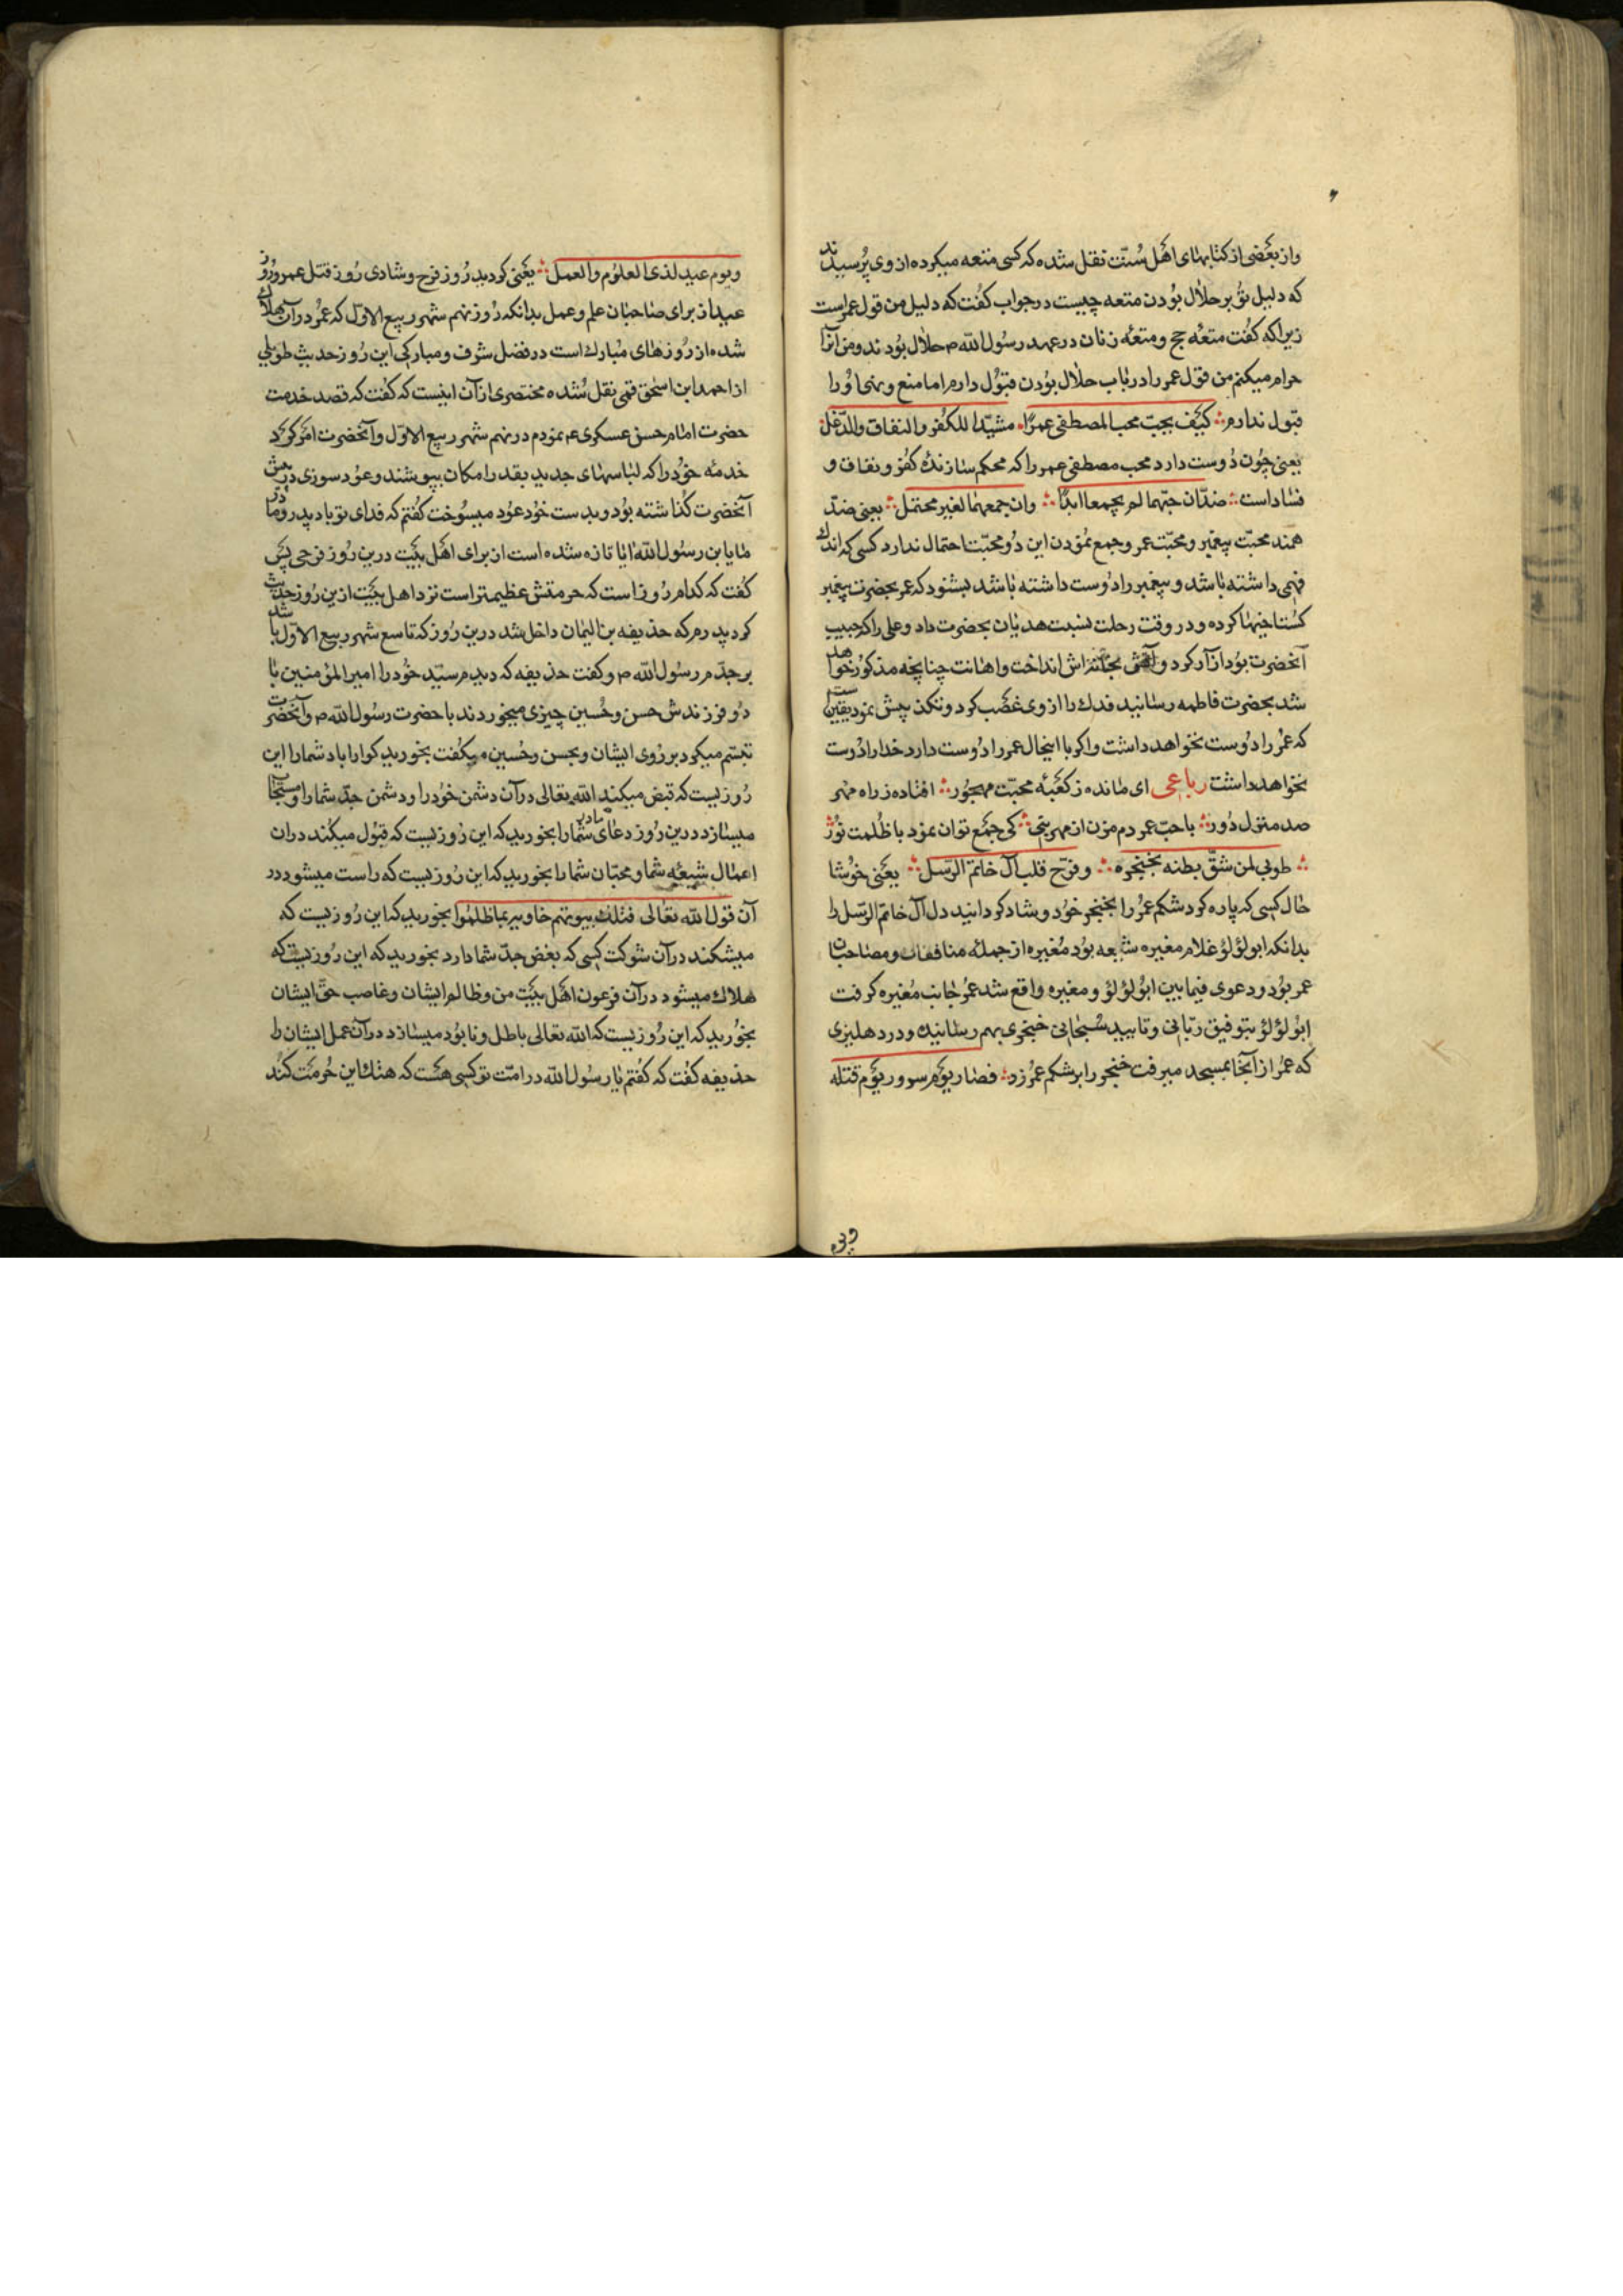 واز بعضی از کتابهای اهل سنت نقل شده که کسی متعه میکرده از وی پرسیدند
که دلیل تو بر حلال بودن متعه چیست در جواب کفت که دلیل من قول عمر است
زیرا که کفت متعه حج و متعه زنان در عهد رسول الله ص حلال بودند و من آنرا
حرام میکنم من قول عمر را در باب حلال بودن قبول دارم اما منع و نهی او را
قبول ندارم کیف یحب محب المصطفی عمرا مشیدا للکفر والنفاق والدغل
یعنی چون دوست دارد محب مصطفی عمر را که محکم سازنده کفر و نفاق و
فساد است ضدان حبهما لم یجمعا ابدا وان جمعهما لغیر محتمل یعنی ضد
همند محبت پیغمبر و محبت عمر و جمع نمودن این دو محبت احتمال ندارد کسی که اندک
فهمی داشته باشد و پیغمبر را دوست داشته باشد بشنود که عمر بحضرت پیغمبر
کستاخیها کرده و در وقت رحلت نسبت هذیان بحضرت داد و علی را که حبیب
آنحضرت بود از آر کرد و آتش بخانه اش انداخت و اهانت چنانچه مذکور خواهد
شد بحضرت فاطمه رسانید فدک را از وی غصب کرد و تکذیبش نمود یقین است
که عمر را دوست نخواهد داشت واکر با اینحال عمر را دوست دارد خدا را دوست
نخواهد داشت رباعی ای مانده ز کعبه محبت مهجور افتاده ز راه مهر
صد منزل دور با حب عمر دم مزن از مهر نبی کی جمع توان نمود با ظلمت نور
طوبی لمن شق بطنه بخنجره وفرح قلب آل خاتم الرسل یعنی خوشا
حال کسی که پاره کرد شکم عمر را بخنجر خود و شاد کردانید دل آل خاتم الرسل را
بدانکه ابو لؤلؤ غلام مغیره شعبه بود مغیره از جمله منافقان و مصاحبان
عمر بود و دعوی فیما بین ابو لؤلؤ و مغیره واقع شد عمر جانب مغیره کرفت
ابو لؤلؤ بتوفیق ربانی و تایید سبحانی خنجری بهم رسانید و در دهلیزی
که عمر از آنجا بمسجد میرفت خنجر را بر شکم عمر زد فصار یوم سرور یوم قتله
ویوم عید لذی العلوم والعمل یعنی کردید روز فرح و شادی روز قتل عمر و روز
عید از برای صاحبان علم و عمل بدانکه روز نهم شهر ربیع الاول که عمر در آن هلاک
شده از روزهای مبارک است در فضل شرف و مبارکی این روز حدیث طویلی
از احمد ابن اسحق قمی نقل شده مختصری از آن اینست که کفت که قصد خدمت
حضرت امام حسن عسکری ع نمودم در نهم شهر ربیع الاول و آنحضرت امر کرد
خدمه خود را که لباسهای جدید بقدر امکان بپوشند و عود سوزی در پیش
آنحضرت کذاشته بود و بدست خود عود میسوخت کفتم که فدای تو باد پدر و مادر
ما یا بن رسول الله ایا تازه شده است از برای اهل بیت درین روز فرحی پس
کفت که کدام روز است که حرمتش عظیمتر است نزد اهل بیت ازین روز حدیث
کرد پدرم که حذیفه بن الیمان داخل شد درین روز که تاسع شهر ربیع الاول باشد
بر جدم رسول الله ص و کفت حذیفه که دیدم سید خود را امیر المؤمنین با
دو فرزندش حسن و حسین چیزی میخوردند با حضرت رسول الله ص و آنحضرت
تبسم میکرد بر روی ایشان و بحسن و حسین میکفت بخورید کوارا باد شما را این
روزیست که قبض میکند الله تعالی در آن دشمن خود را و دشمن جد شما را و مستجاب
میسازد درین روز دعای مادر شما را بخورید که این روزیست که قبول میکند در ان
اعمال شیعه شما و محبان شما را بخورید که این روزیست که راست میشود در
آن قول الله تعالی فتلک بیوتهم خاویه بما ظلموا بخورید که این روزیست که
میشکند در آن شوکت کسی که بغض جد شما دارد بخورید که این روزیست که
هلاک میشود در آن فرعون اهل بیت من و ظالم ایشان و غاصب حق ایشان
بخورید که این روزیست که الله تعالی باطل و نابود میسازد در آن عمل ایشان را
حذیفه کفت که کفتم یا رسول الله در امت تو کسی هست که هتک این حرمت کند